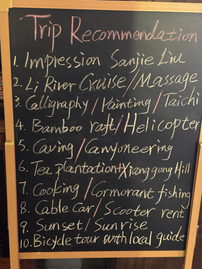 Trip Recommendation
1. Impression Sanjie Liu
2. Li River Cruise/Massage
3. Calligraphy/Painting/Taichi
4. Bamboo raft/Helicopter
5. Caving/Canyoneering
6. Tea plantation+Xianggong Hill
7. Cooking/Cormorant fishing
8. Cable Car/Scooter rent
9. Sunset/Sunrise
10. Bicycle tour with local guide